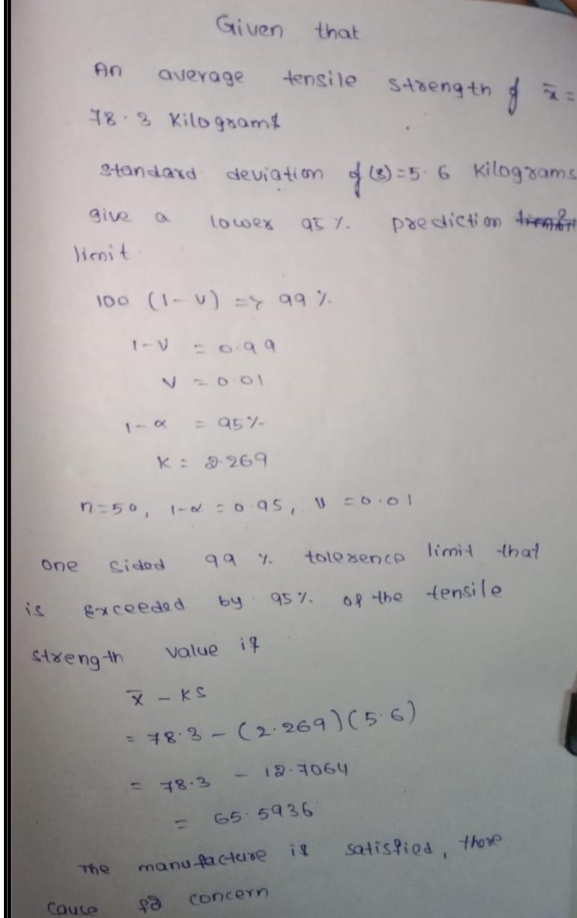 Given that
An average tensile strength of x̄ =
78.3 kilograms
standard deviation of (s) = 5.6 kilograms
give a lower 95 %. prediction
limit.
100 (1-υ) => 99 %.
1-υ = 0.99
υ = 0.01
1-α = 95%
K = 2.269
n=50, 1-α = 0.95, υ = 0.01
one sided 99 %. tolerence limit that
is Exceeded by 95%. of the tensile
strength value is
x̄ - KS
= 78.3 - (2.269)(5.6)
= 78.3 - 12.7064
= 65.5936
The manufacture is satisfied, there
cause concern